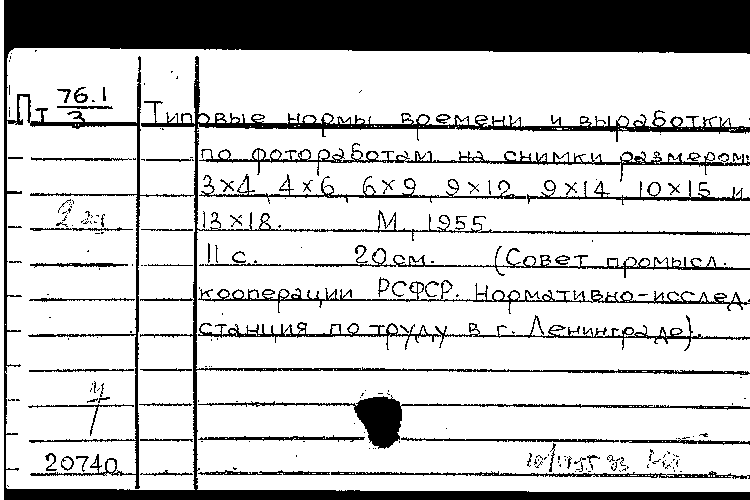 Пт 76.1/3
Типовые нормы времени и выработки
по фотоработам на снимки размером
3×4, 4×6, 6×9, 9×12, 9×14, 10×15 и
2 эк 13×18. М, 1955.
11 с. 20 см. (Совет промысл.
кооперации РСФСР. Нормативно-исслед.
станция по труду в г. Ленинграде).
20740